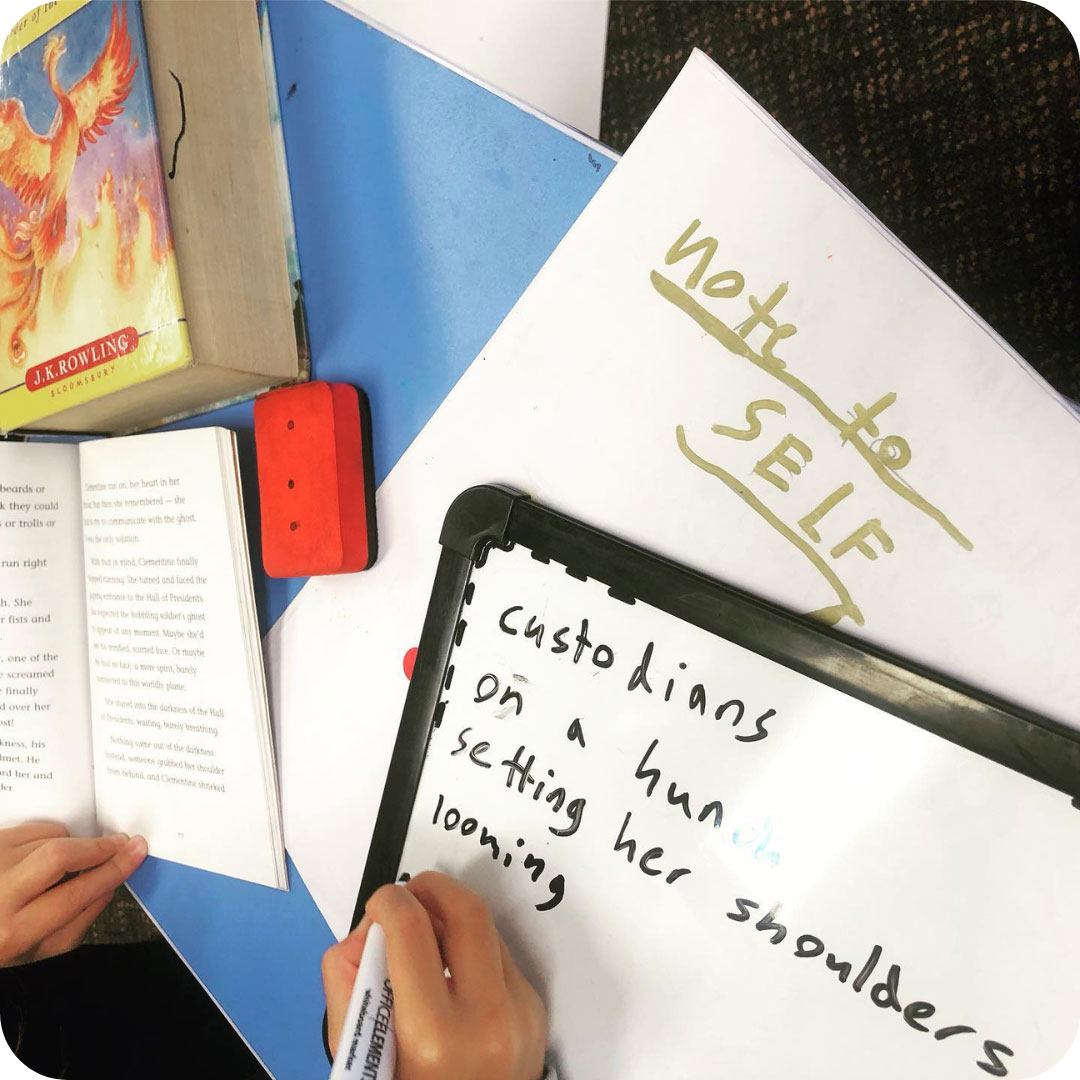 J.K.ROWLING
BLOOMSBURY
beards or
k they could
or trolls or
run right
h. She
r fists and
, one of the
screamed
finally
d over her
ost!
kness, his
lmet. He
ard her and
der.
run on, her heart in her
but then she remembered — she
to communicate with the ghost.
was the only solution.
With that in mind, Clementine finally
stopped running. She turned and faced the
entrance to the Hall of Presidents.
expected the hobbling soldier's ghost
appear at any moment. Maybe she'd
see his terrified, scarred face. Or maybe
he had no face, a mere spirit, barely
connected to this worldly plane.
She stared into the darkness of the Hall
of Presidents, waiting, barely breathing.
Nothing came out of the darkness.
Instead, someone grabbed her shoulder
from behind, and Clementine shrieked.
note to
SELF
custodians
on a hunch
setting her shoulders
looming
OFFICEELEMENTS
whiteboard marker